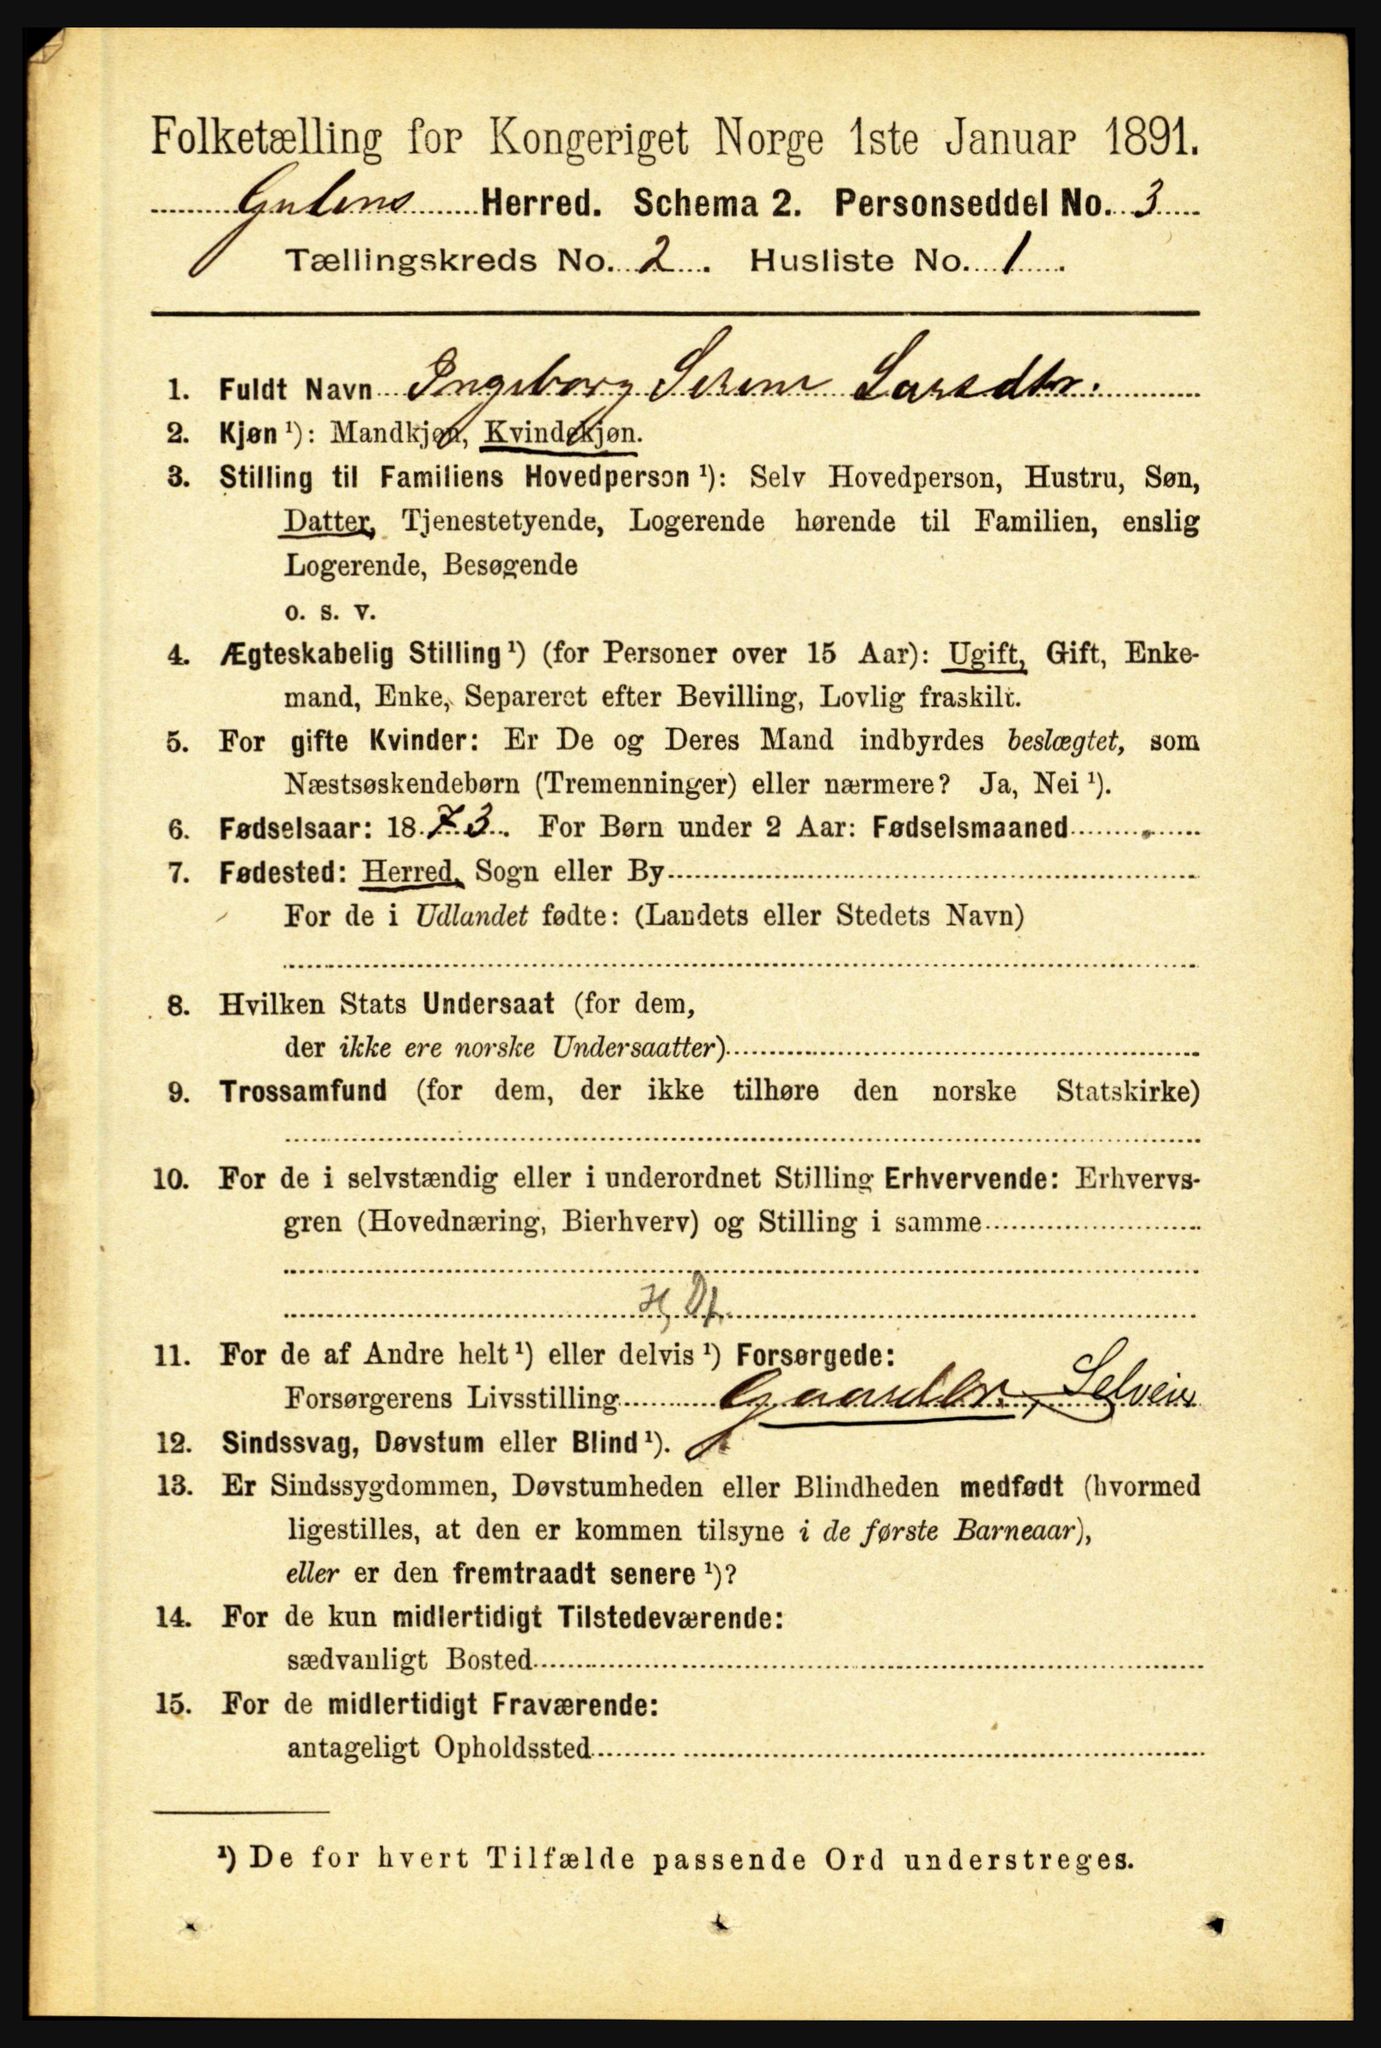 Folketælling for Kongeriget Norge 1ste Januar 1891.
Gulens Herred. Schema 2. Personseddel No. 3
Tællingskreds No. 2. Husliste No. 1.
1. Fuldt Navn Ingeborg Serene Larsdtr.
2. Kjøn ¹): Mandkjøn, Kvindekjøn.
3. Stilling til Familiens Hovedperson ¹): Selv Hovedperson, Hustru, Søn,
Datter, Tjenestetyende, Logerende hørende til Familien, enslig
Logerende, Besøgende
o. s. v.
4. Ægteskabelig Stilling ¹) (for Personer over 15 Aar): Ugift, Gift, Enke-
mand, Enke, Separeret efter Bevilling, Lovlig fraskilt.
5. For gifte Kvinder: Er De og Deres Mand indbyrdes beslægtet, som
Næstsøskendebørn (Tremenninger) eller nærmere? Ja, Nei ¹).
6. Fødselsaar: 1873. For Børn under 2 Aar: Fødselsmaaned
7. Fødested: Herred, Sogn eller By
For de i Udlandet fødte: (Landets eller Stedets Navn)
8. Hvilken Stats Undersaat (for dem,
der ikke ere norske Undersaatter)
9. Trossamfund (for dem, der ikke tilhøre den norske Statskirke)
10. For de i selvstændig eller i underordnet Stilling Erhvervende: Erhvervs-
gren (Hovednæring, Bierhverv) og Stilling i samme
11. For de af Andre helt ¹) eller delvis ¹) Forsørgede:
Forsørgerens Livsstilling Gaardbr. Selveier
12. Sindssvag, Døvstum eller Blind ¹).
13. Er Sindssygdommen, Døvstumheden eller Blindheden medfødt (hvormed
ligestilles, at den er kommen tilsyne i de første Barneaar),
eller er den fremtraadt senere ¹)?
14. For de kun midlertidigt Tilstedeværende:
sædvanligt Bosted
15. For de midlertidigt Fraværende:
antageligt Opholdssted
¹) De for hvert Tilfælde passende Ord understreges.